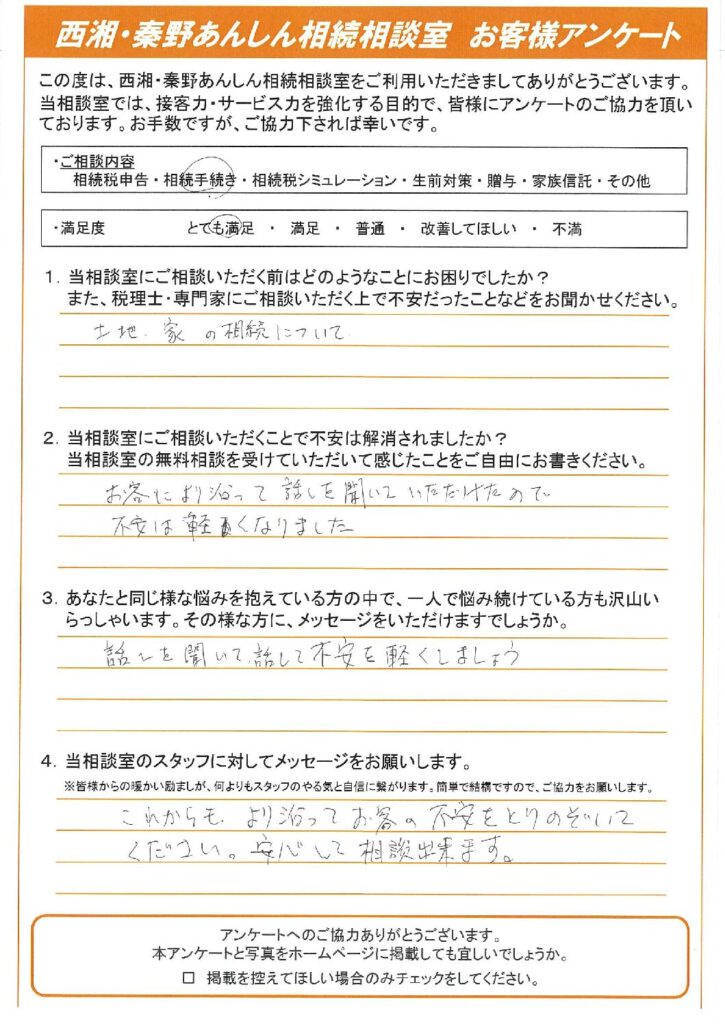 西湘・秦野あんしん相続相談室 お客様アンケート
この度は、西湘・秦野あんしん相続相談室をご利用いただきましてありがとうございます。
当相談室では、接客力・サービス力を強化する目的で、皆様にアンケートのご協力を頂い
ております。お手数ですが、ご協力下されば幸いです。
・ご相談内容
相続税申告・相続手続き・相続税シミュレーション・生前対策・贈与・家族信託・その他
・満足度 とても満足 ・ 満足 ・ 普通 ・ 改善してほしい ・ 不満
１．当相談室にご相談いただく前はどのようなことにお困りでしたか？
また、税理士・専門家にご相談いただく上で不安だったことなどをお聞かせください。
土地、家の相続について
２．当相談室にご相談いただくことで不安は解消されましたか？
当相談室の無料相談を受けていただいて感じたことをご自由にお書きください。
お客により沿って話しを聞いていただけたので
不安は軽くなりました
３．あなたと同じ様な悩みを抱えている方の中で、一人で悩み続けている方も沢山い
らっしゃいます。その様な方に、メッセージをいただけますでしょうか。
話しを聞いて、話して不安を軽くしましょう
４．当相談室のスタッフに対してメッセージをお願いします。
※皆様からの暖かい励ましが、何よりもスタッフのやる気と自信に繋がります。簡単で結構ですので、ご協力をお願いします。
これからも、より沿ってお客の不安をとりのぞいて
ください。安心して相談出来ます。
アンケートへのご協力ありがとうございます。
本アンケートと写真をホームページに掲載しても宜しいでしょうか。
□ 掲載を控えてほしい場合のみチェックをしてください。